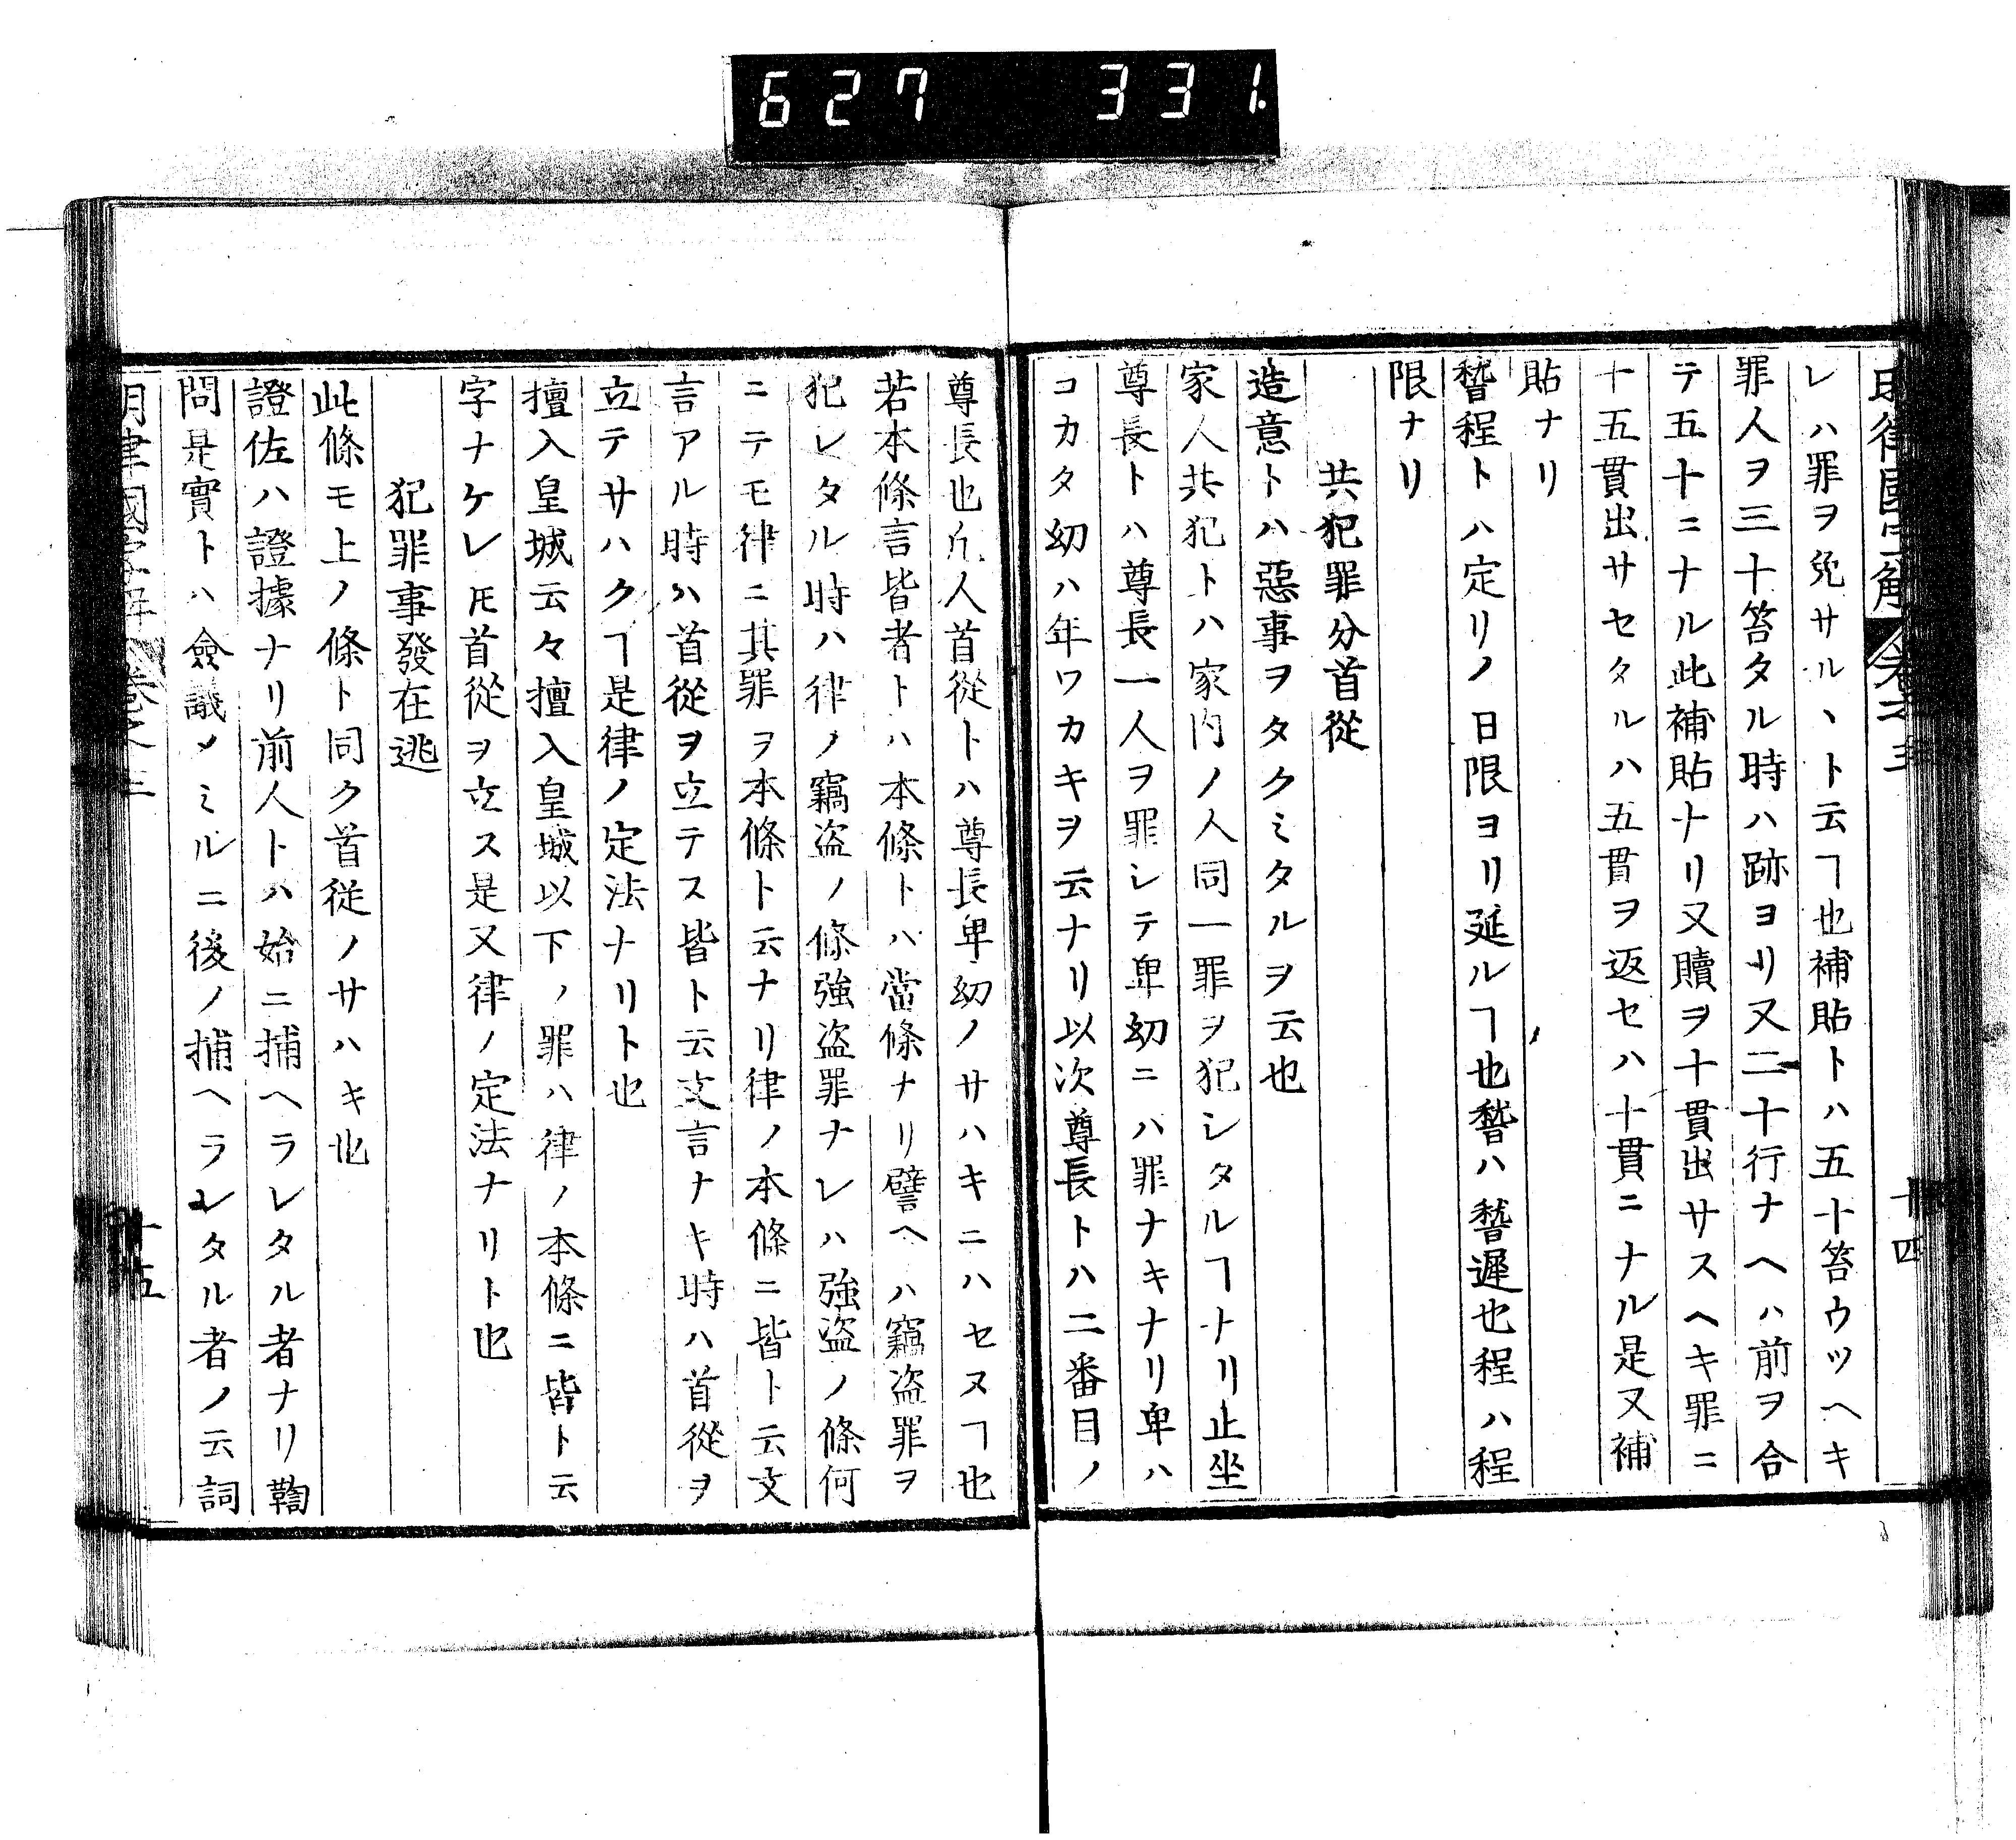 627 331
明律國字解 卷之三 十四
レハ罪ヲ免サルヽト云ヿ也補貼トハ五十笞ウツヘキ
罪人ヲ三十笞タル時ハ跡ヨリ又二十行ナヘハ前ヲ合
テ五十ニナル此補貼ナリ又贖ヲ十貫出サスヘキ罪ニ
十五貫出サセタルハ五貫ヲ返セハ十貫ニナル是又補
貼ナリ
稽程トハ定リノ日限ヨリ延ルヿ也稽ハ稽遲也程ハ程
限ナリ
共犯罪分首從
造意トハ惡事ヲタクミタルヲ云也
家人共犯トハ家内ノ人同一罪ヲ犯シタルヿナリ止坐
尊長トハ尊長一人ヲ罪シテ卑幼ニハ罪ナキナリ卑ハ
コカタ幼ハ年ワカキヲ云ナリ以次尊長トハ二番目ノ
尊長也凡人首從トハ尊長卑幼ノサハキニハセヌヿ也
若本條言皆者トハ本條トハ當條ナリ譬ヘハ竊盗罪ヲ
犯レタル時ハ律ノ竊盗ノ條強盗罪ナレハ強盗ノ條何
ニテモ律ニ其罪ヲ本條ト云ナリ律ノ本條ニ皆ト云文
言アル時ハ首從ヲ立テス皆ト云文言ナキ時ハ首從ヲ
立テサハクヿ是律ノ定法ナリト也
擅入皇城云々擅入皇城以下ノ罪ハ律ノ本條ニ皆ト云
字ナケレㇳモ首從ヲ立ス是又律ノ定法ナリト也
犯罪事發在逃
此條モ上ノ條ト同ク首從ノサハキ也
證佐ハ證據ナリ前人トハ始ニ捕ヘラレタル者ナリ鞫
問是實トハ僉議メミルニ後ノ捕ヘラレタル者ノ云詞
明律國字解 卷之三 十五